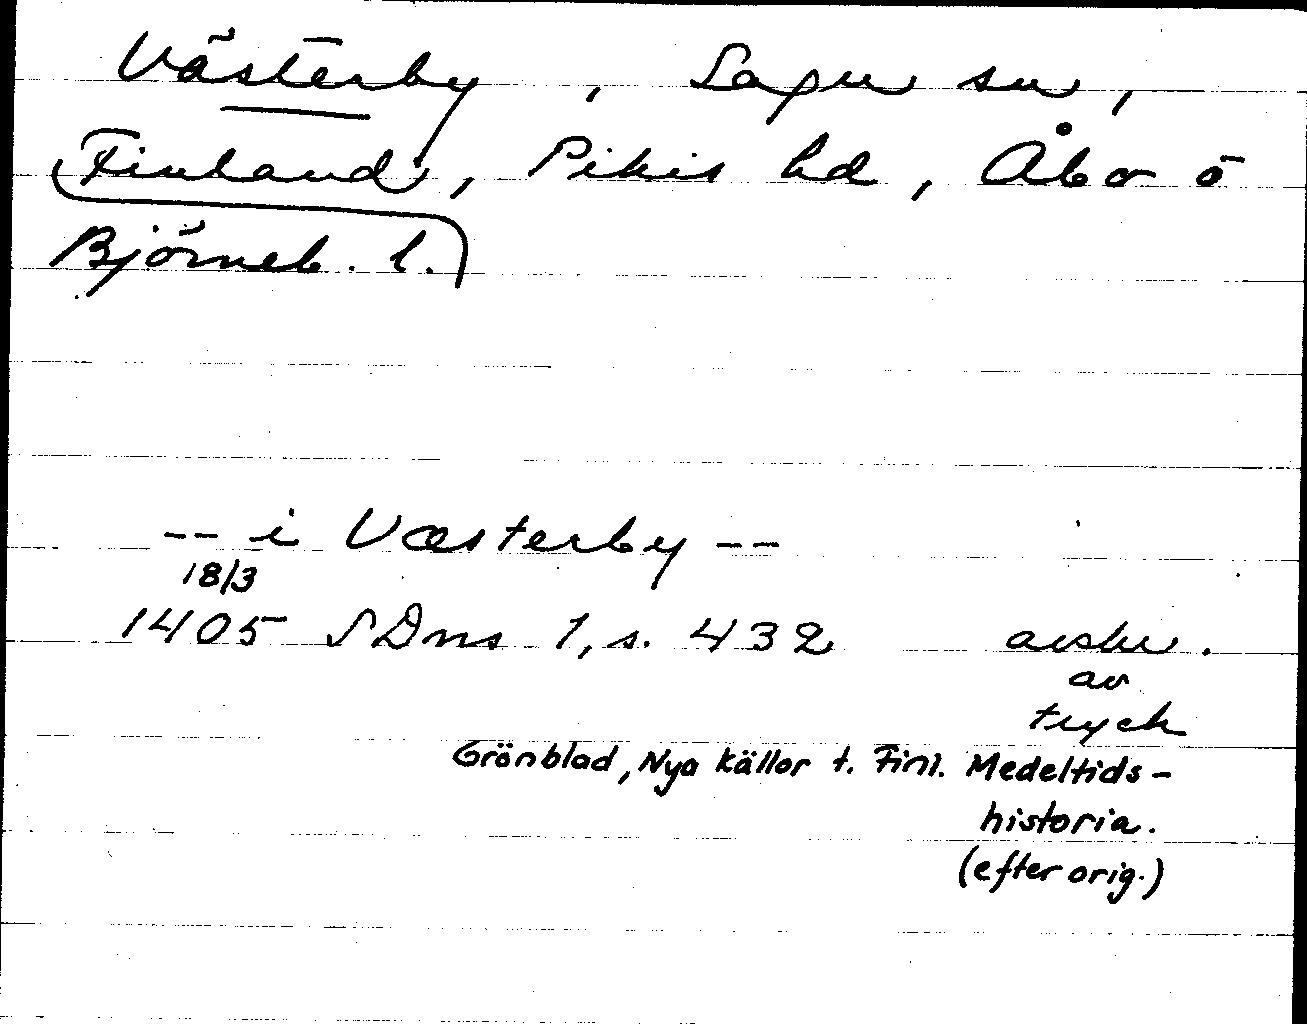 Västerby, Sagu sn,
Finland, Pikis hd, Åbo o
Björneb. l.
-- i Væsterby --
18/3
1405 SDns 1, s. 432 avskr.
av
tryck
Grönblad, Nya källor t. Finl. Medeltids-
historia.
(efter orig.)